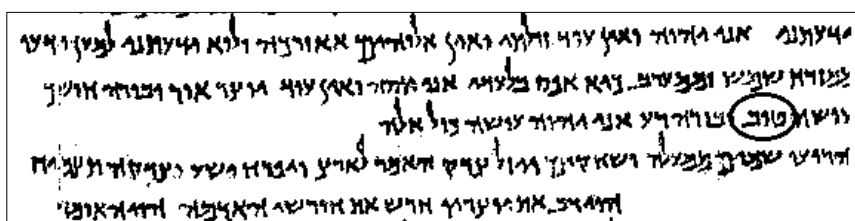 ידעתני אני יהוה ואין עוד וזולתי ואין אלוהים אאזורכה ולוא ידעתני למען ידעו
ממזרח שמש וממערב כיא אפס בלעדי אני יהוה ואין עוד יוצר אור ובורה חושך
עושה טוב ובורה רע אני יהוה עושה כול אלה
הריעו שמים ממעלה ושחקים ויזל צדק האמר לארץ ויפרח ישע וצדקה תצמיח
הוי רב את יוצריו חרש את חורשי האדמה הוי האומר